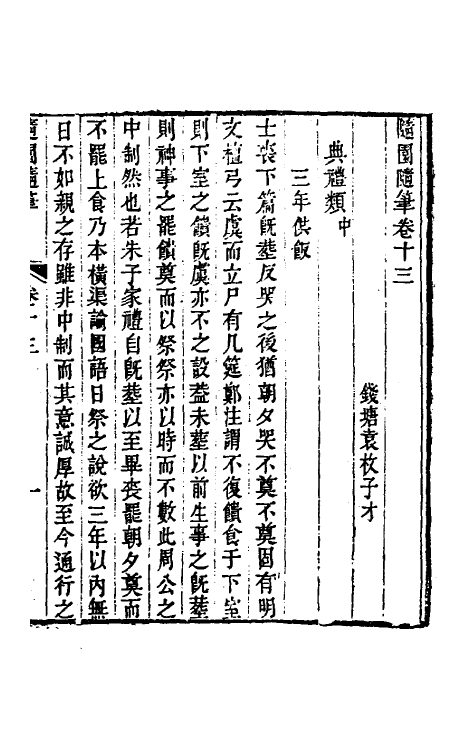 隨園隨筆卷十三
錢塘袁枚子才
典禮類中
三年供飯
士喪下篇旣葬反哭之後猶朝夕哭不奠不奠固有明
文檀弓云虞而立尸有几筵鄭注謂不復饋食于下室
則下室之饋旣虞亦不之設葢未葬以前生事之旣葬
則神事之罷饋奠而以祭祭亦以時而不數此周公之
中制然也若朱子家禮自旣葬以至畢喪罷朝夕奠而
不罷上食乃本橫渠論國語日祭之說欲三年以內無
日不如親之存雖非中制而其意誠厚故至今通行之
隨園隨筆 卷十三 一